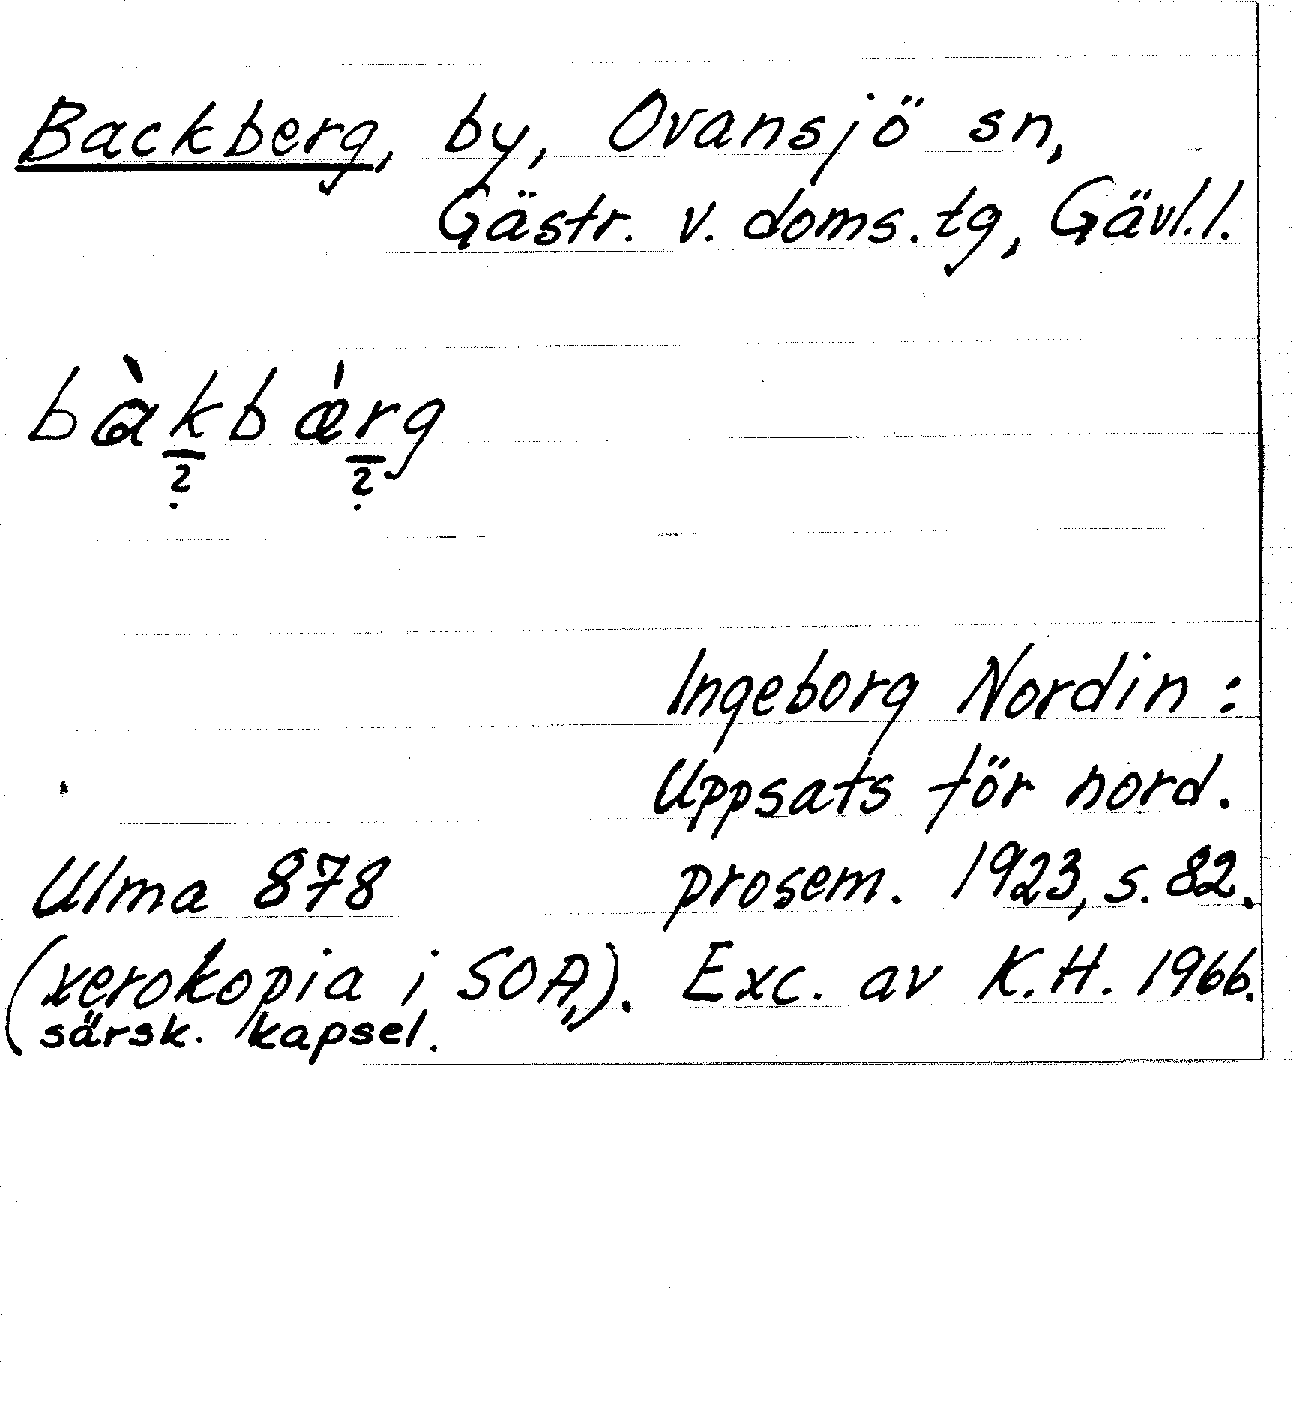 Backberg, by, Ovansjö sn,
Gästr. v. doms. tg, Gävl. l.
bàkbǽrg
? ?
Ingeborg Nordin:
Uppsats för nord.
Ulma 878 prosem. 1923, s. 82.
(xerokopia i SOA,). Exc. av K.H. 1966.
särsk. kapsel.